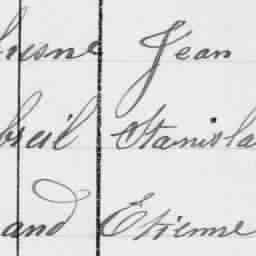 resne Jean
breil Stanisla
and Etienne